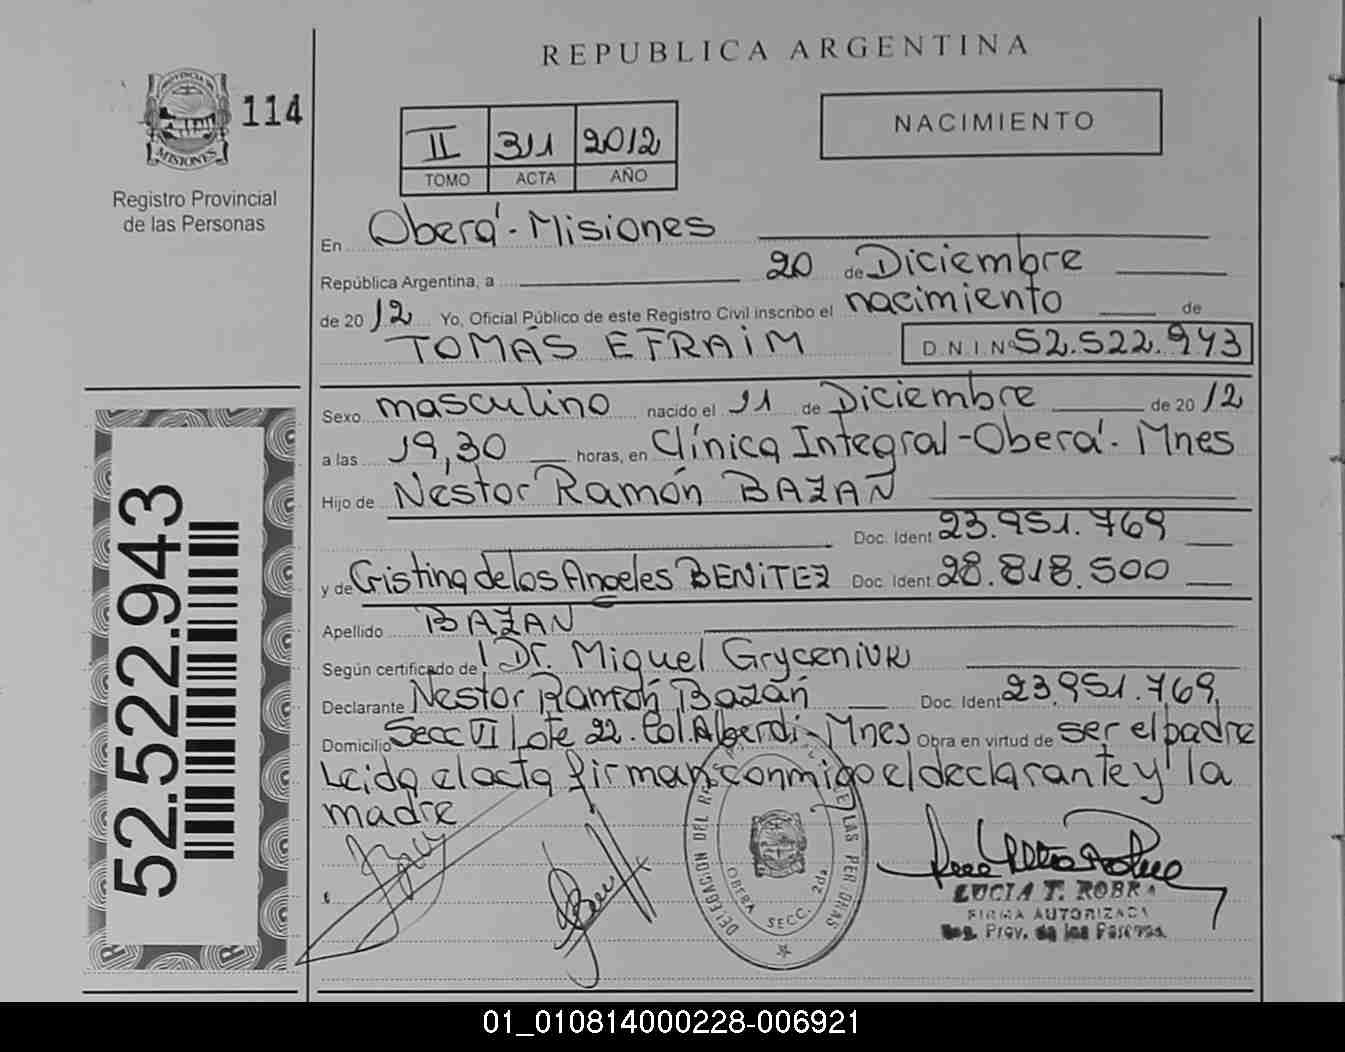 REPUBLICA ARGENTINA
PROVINCIA DE
MISIONES
114
Registro Provincial
de las Personas
II 311 2012
TOMO ACTA AÑO
NACIMIENTO
En Oberá - Misiones
República Argentina, a 20 de Diciembre
de 2012 Yo, Oficial Público de este Registro Civil inscribo el nacimiento de
TOMÁS EFRAIM D.N.I.Nº 52.522.943
Sexo masculino nacido el 11 de Diciembre de 2012
a las 19,30 horas, en Clínica Integral - Oberá - Mnes
Hijo de Néstor Ramón BAZAN
Doc. Ident 23.951.769
y de Cristina de los Angeles BENITEZ Doc. Ident. 28.818.500
Apellido BAZAN
Según certificado de Dr. Miguel Gryceniuk
Declarante Néstor Ramón Bazán Doc. Ident 23.951.769
Domicilio Secc VI Lote 22. Col. Alberdi - Mnes Obra en virtud de ser el padre
Leida el acta firman conmigo el declarante y la
madre
52.522.943
DELEGACION DEL
DE LAS PERSONAS
OBERA SECC. 2da.
LUCIA T.
FIRMA AUTORIZADA
Reg. Prov. de las Personas
01_010814000228-006921